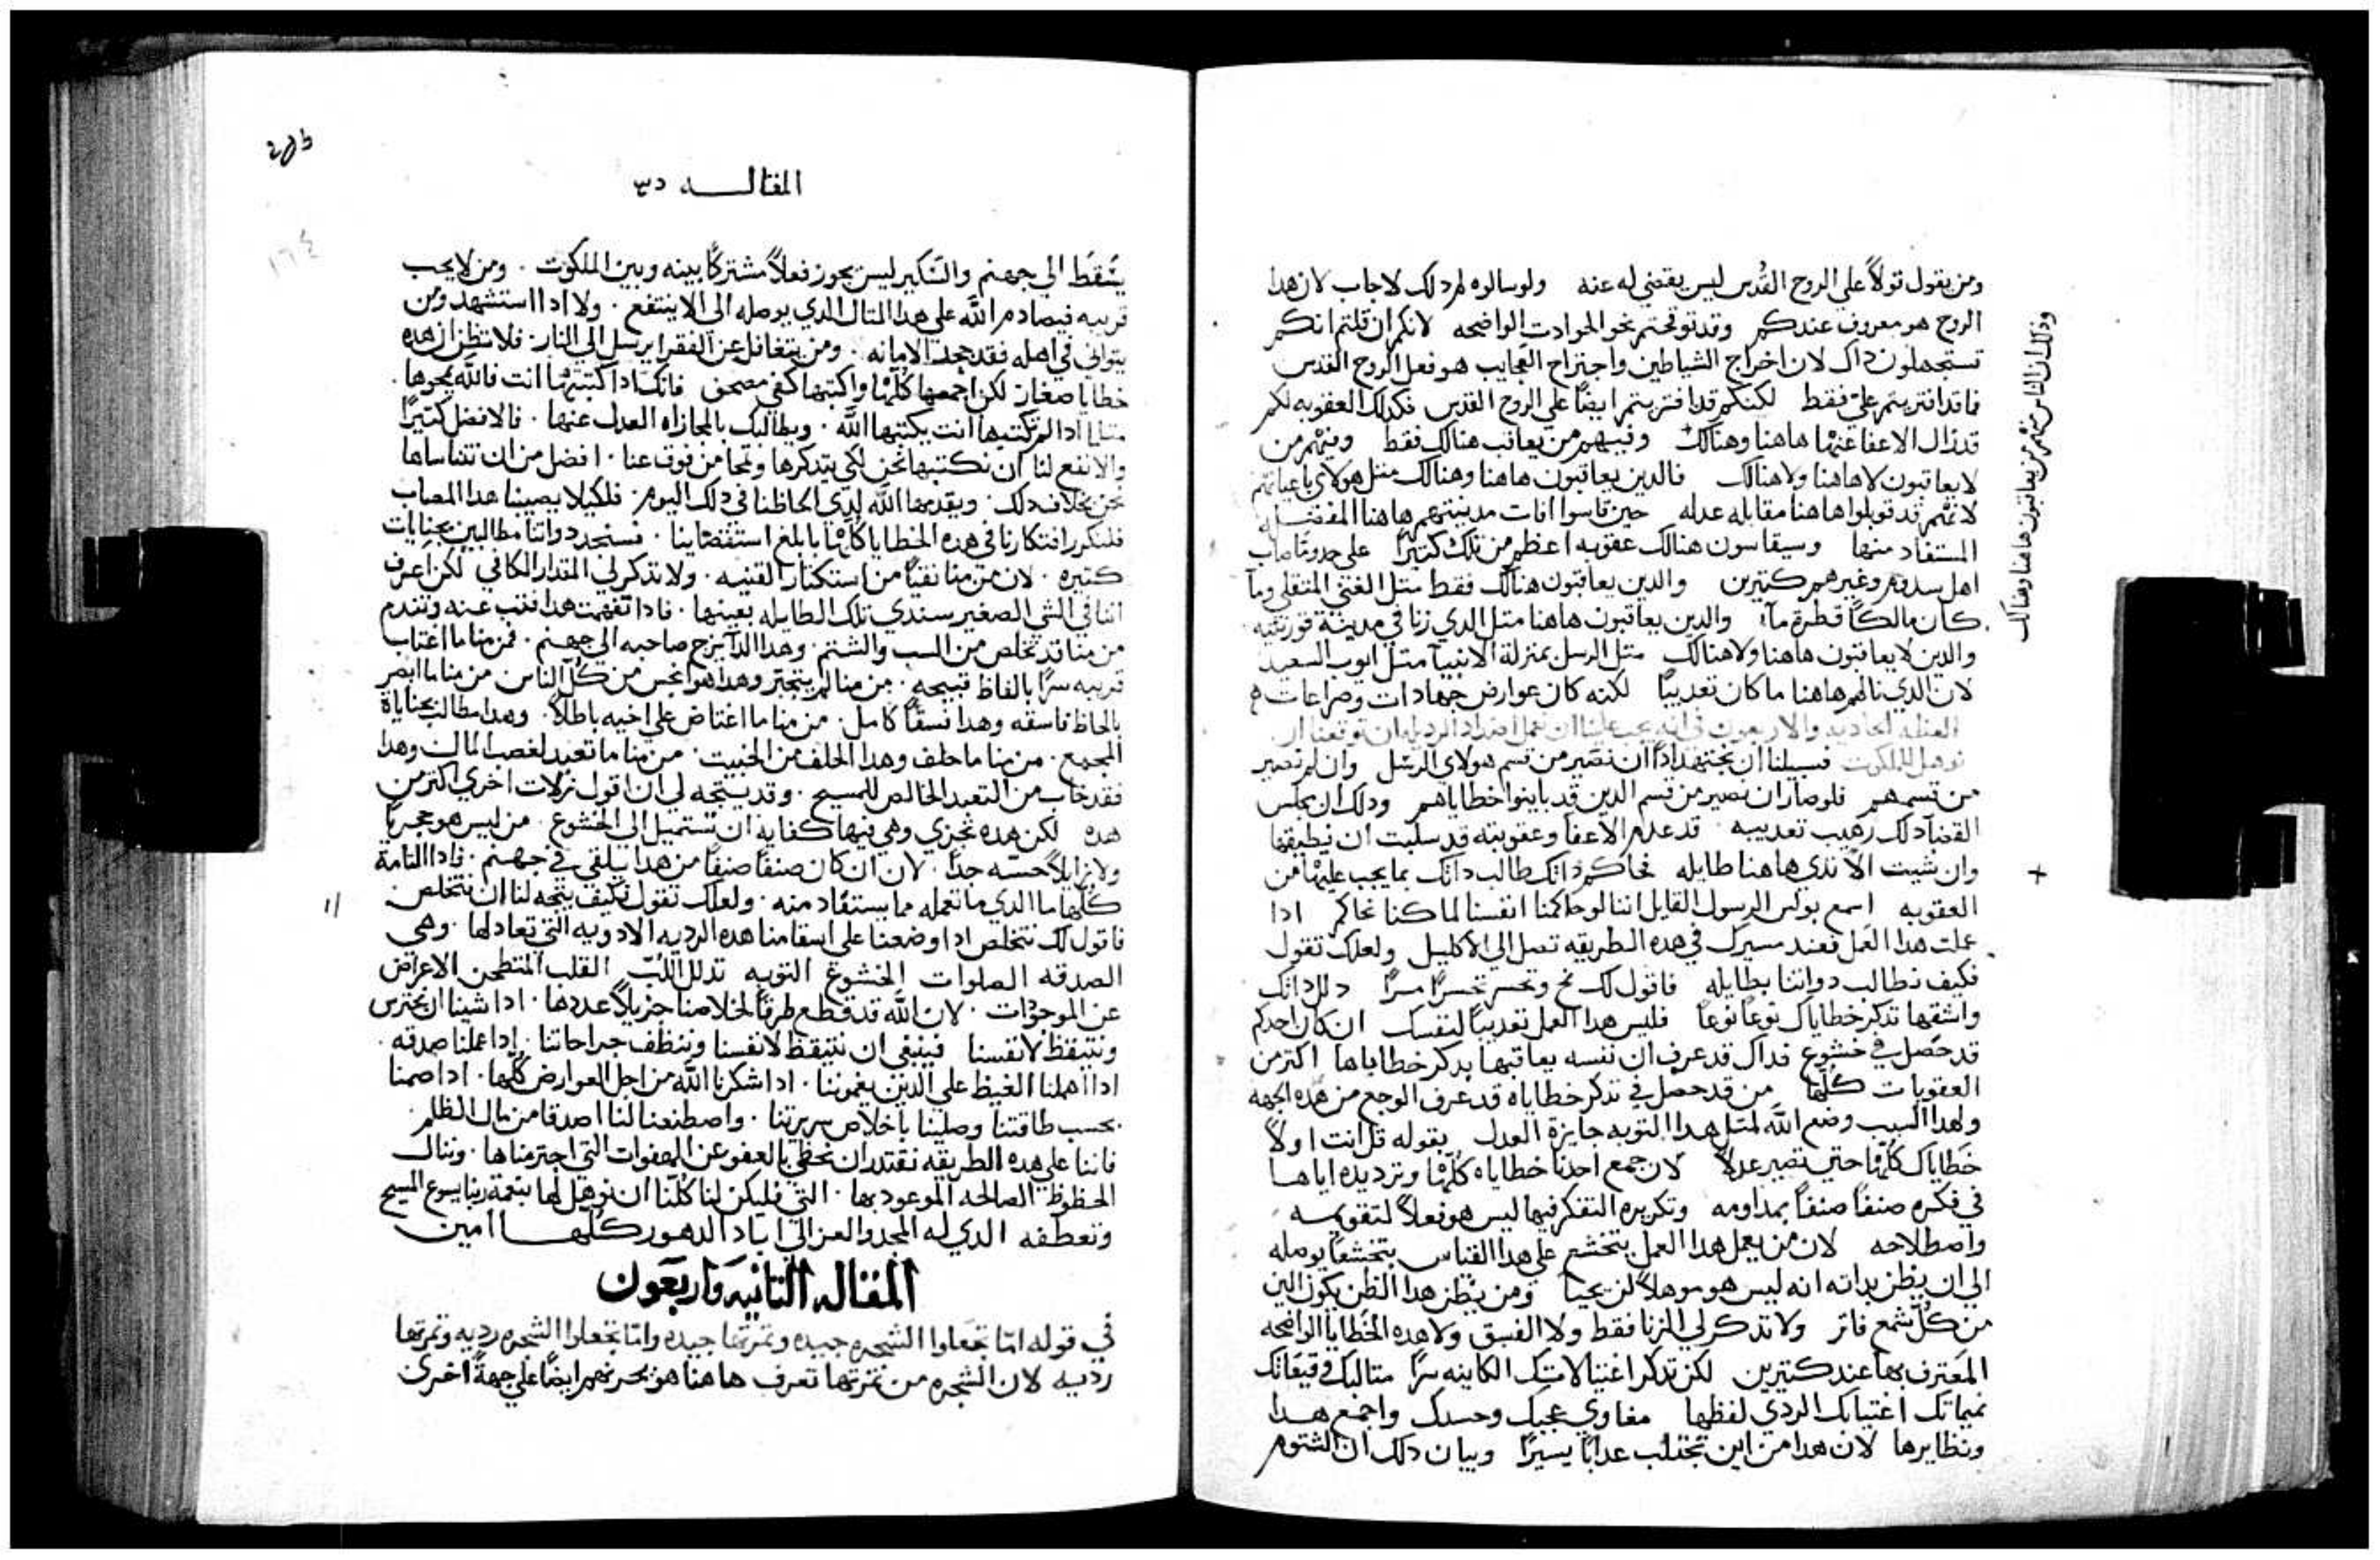 ومن يقول قولاً على الروح القُدس ليس يقضي له عنه ولو سالوه لم دلك لاجاب لان هدا
الروح هو معروف عندكم وقد توقحتم نحو الحوادت الواضحه لانكم ان قلتم انكم
تستجهلون داك لان اخراج الشياطين واجتراح العجايب هو فعل الروح القدس
فاقد افتريتم علي فقط لكنكم قد افتريتم ايضًا علي الروح القدس فكدلك العقوبه لكم
قد زال الاعفا عنها هاهنا وهنالك وفيهم من يعاقب هنالك فقط ومنهم من
لا يعاقبون لا هاهنا ولا هنالك فالدين يعاقبون هاهنا وهنالك متل هولاي باعيانهم
لانهم قد قوبلوا هاهنا مقابله عدله حين قاسوا افات مدينتهم هاهنا
المستفاد منها وسيقاسون هنالك عقوبه اعظم من تلك كتيرًا على حدو ما صاب
اهل سدوم وغيرهم كتيرين والدين يعاقبون هنالك فقط متل الغني المتقلي وما
كان مالكًا قطرة مآء والدين يعاقبون هاهنا متل الدي زنا في مدينة قورنتيه
والدين لا يعاقبون هاهنا ولا هنالك متل الرسل بمنزلة الانبيآ متل ايوب السعيد
لان الدي نالهم هاهنا ما كان تعديبًا لكنه كان عوارض جهادات وصراعات
العظه الحاديه والاربعون في انه يجب علينا ان نعمل اضداد الرديله ان توقعنا ان
نوهل للملكوت فسبيلنا ان نجتهد ادًا ان نصير من قسم هولاي الرسل وان لم نصير
من قسمهم فلو صار ان نصير من قسم الدين قد باينوا خطاياهم ودلك ان مجلس
القضآ دلك رهيب تعديبه قد عدم الاعفا وعقوبته قد سلبت ان نطيقها
وان شيت الا تدي هاهنا طايله فحاكم داتك طالب داتك بما يجب عليها من
العقوبه اسمع بولس الرسول القايل اننا لو حاكمنا انفسنا لما كنا نحاكم ادا
علت هدا العمل فعند سيرك في هده الطريقه تصل الي الاكليل ولعلك تقول
فكيف نطالب دواتنا بطايله فاقول لك نح وتحسر تحسرًا مرًا دلل داتك
واشقها تدكر خطاياك نوعًا نوعًا فليس هدا العمل تعديبًا لنفسك ان كان احدكم
قد حصل في خشوع فداك قد عرف ان نفسه يعاقبها بدكر خطاياها اكتر من
العقوبات كلها من قد حصل في تدكر خطاياه قد عرف الوجع من هده الجهه
ولهدا السبب وضع الله لمتل هدا التوبه جايزة العدل بقوله قل انت اولاً
خطاياك كلها حتي تصير عدلاً لان جمع احدنا خطاياه كلها وترديده اياها
في فكره صنفًا صنفًا بمداومه وتكريره التفكر فيها ليس هو فعلاً لتقويمه
واصطلاحه لان من يعمل هدا العمل يتخشع على هدا القياس يتخشعًا يوصله
الي ان يظن بداته انه ليس هو موهلاً لن يحيا ومن يظن هدا الظن يكون الين
من كل شمع فاتر ولا تدكر لي الزنا فقط ولا الفسق ولا هده الخطايا الواضحه
المعترف بها عند كتيرين لكن تدكر اغتيالاتك الكاينه سرًا متالبك وقيعاتك
نميماتك اغتيابك الردي لفظها مغاوي عجبك وحسدك واجمع هدا
ونظايرها لان هدا من اين تجتلب عدابًا يسيرًا وبيان دلك ان الشتوم
ودلك ان الناس منهم من يعاقبون هاهنا وهنالك
+
205
١٦٤
المقالـــه ٤١
يسقط الي جهنم والسكير ليس يحوز فعلاً مشتركًا بينه وبين الملكوت . ومن لا يحب
قريبه فيصادم الله علي هدا المتال الدي يوصله الى الا ينتفع . ولا ادا استشهد ومن
يتوانى في اهله فقد جحد الامانه . ومن يتغافل عن الفقرا يرسل الي النار . فلا تظن ان هده
خطايا صغار لكن اجمعها كلها واكتبها كفي مصحف فانك ادا كتبتها انت فالله يمحوها .
متلما ادا لم تكتبها انت يكتبها الله . ويطالبك بالمجازاه العدل عنها . فالافضل كتيرًا
والانفع لنا ان نكتبها نحن لكي يتدكرها وتمحا من فوق عنا . افضل من ان نتناساها
نحن بخلاف دلك . ويقدمها الله لدي الحاظنا في دلك اليوم . فلكيلا يصيبنا هدا المصاب
فلنكرر افتكارنا في هده الخطايا كلها بابلغ استقصاينا . فسنجد دواتنا مطالبين بجنايات
كتيره . لان من منا نقيًا من استكتار القنيه . ولا تدكر لي المقدار الكافي لكن اعرف
اننا في الشي الصغير سندي تلك الطايله بعينها . فادا تفهمت هدا فتب عنه وتندم
من منا قد تخلص من السب والشتم . وهدا الدآ يزج صاحبه الي جهنم . فمن منا ما اغتاب
قريبه سرًا بالفاظ قبيحه . من منا لم يتجبر وهدا هو انجس من كل الناس من منا ما ابصر
بالحاظ فاسقه وهدا فسقًا كامل . من منا ما اغتاض علي اخيه باطلاً . وهدا مطالب بجناياة
المجمع . من منا ما حلف وهدا الحلف من الخبيت . من منا ما تعبد لغصب المال وهدا
فقد خاب من التعبد الخالص للمسيح . وقد يتجه لي ان اقول زلات اخري اكتر من
هده لكن هده تجزي وهي فيها كفايه ان تستميل الي الخشوع . من ليس هو حجريًا
ولا زايلاً حسه جدًا . لان ان كان صنفًا صنفًا من هدا يلقي في جهنم . فادا التامة
كلها ما الدي ما تعمله مما يستفاد منه . ولعلك تقول فكيف يتجه لنا ان نتخلص
فاقول لك نتخلص ادا وضعنا على اسقامنا هده الرديه الادويه التي تعادلها . وهي
الصدقه الصلوات الخشوع التوبه تدلل اللب القلب المتطحن الاعراض
عن الموجودات . لان الله قد قطع طرقًا لخلاصنا جزيلاً عددها . ادا شينا ان نحترس
ونتيقظ لانفسنا فينبغي ان نتيقظ لانفسنا وننظف جراحاتنا . ادا عملنا صدقه .
ادا اهملنا الغيظ علي الدين يغموننا . ادا شكرنا الله من اجل العوارض كلها . ادا صمنا
بحسب طاقتنا وصلينا باخلاص سريرتنا . واصطنعنا لنا اصدقا من مال الظلم .
فاننا علي هده الطريقه نقتدر ان نحظي بالعفو عن الهفوات التي اجترمناها . وننال
الحظوظ الصالحه الموعود بها . التي فليكن لنا كلنا ان نوهل لها بنعمة ربنا يسوع المسيح
وتعطفه الدي له المجد والعز الي اباد الدهور كلهـــا امين
المقاله التانيه واربعون
في قوله اما تجعلوا الشجره جيده وتمرتها جيده واما تجعلوا الشجره رديه وتمرتها
رديه لان الشجره من تمرتها تعرف هاهنا هو يحرضهم ايضًا علي جهةً اخرى